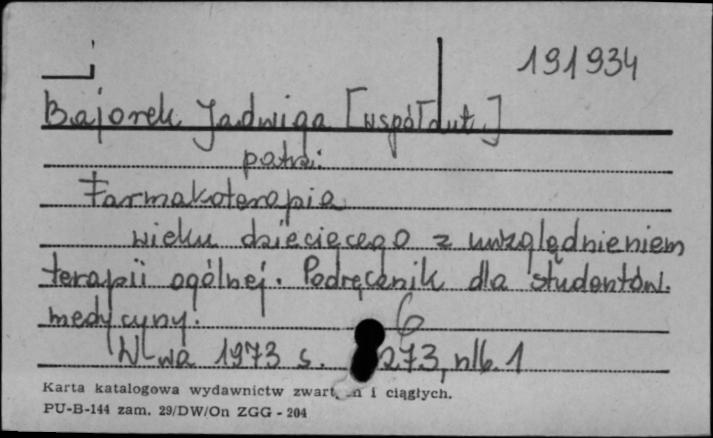 191934
Bajorek Jadwiga [współaut.]
patrz:
Farmakoterapia
wieku dziecięcego z uwzględnieniem
terapii ogólnej. Podręcznik dla studentów
medycyny. 6
W-wa 1973 s. 273, nlb. 1
Karta katalogowa wydawnictw i ciągłych.
PU-B-144 zam. 29/DW/On ZGG - 204